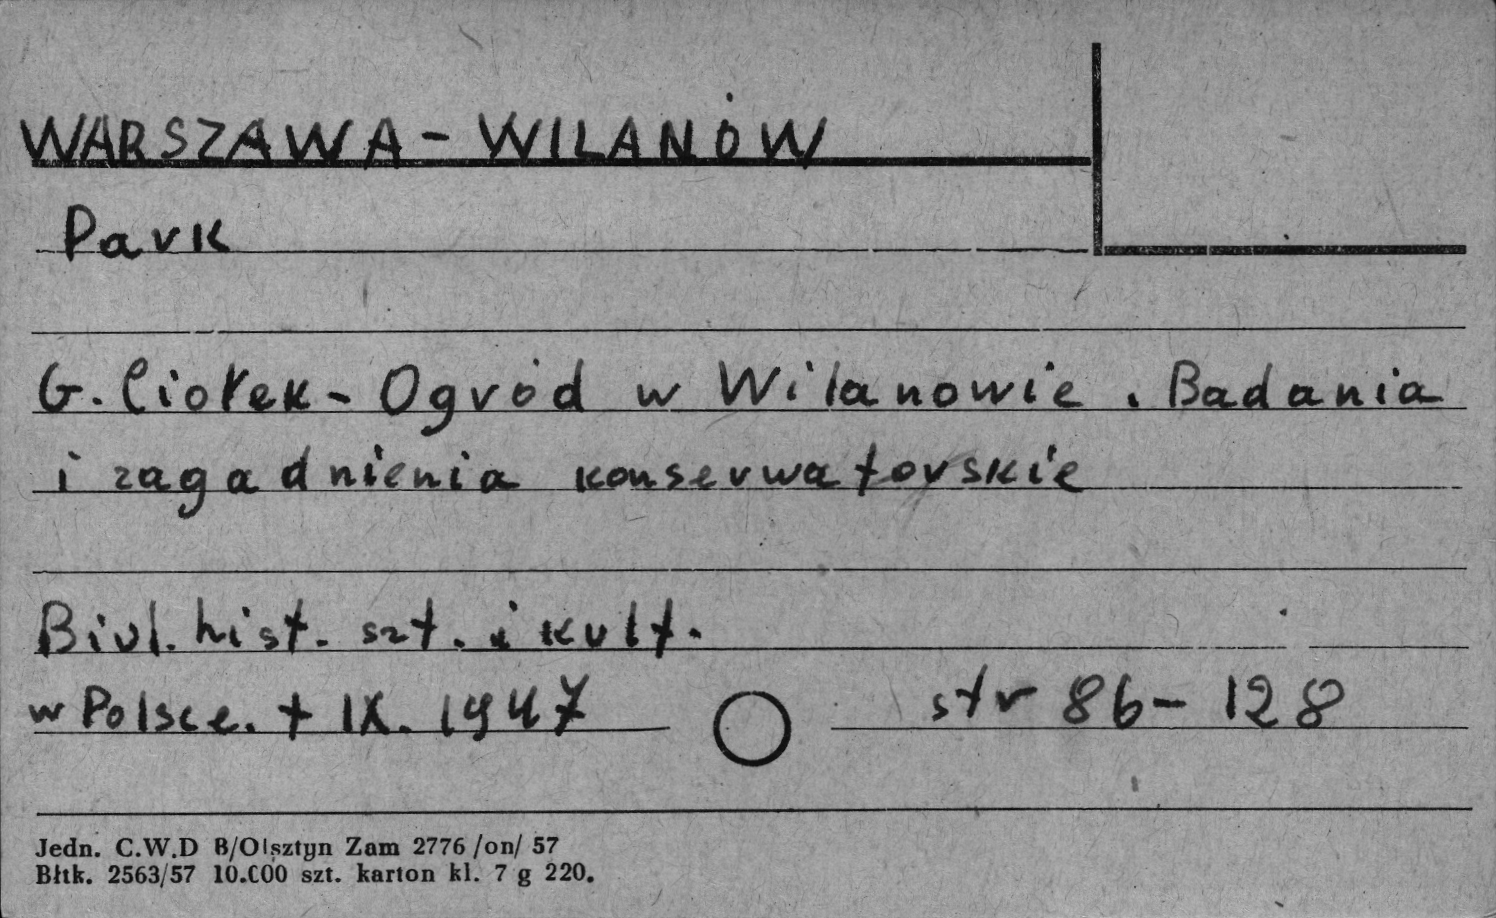 WARSZAWA - WILANÓW
Park
G. Ciołek - Ogród w Wilanowie. Badania
i zagadnienia konserwatorskie
Biul. hist. szt. i kult.
w Polsce. t IX. 1947 str 86-128
Jedn. C.W.D B/Olsztyn Zam 2776 /on/ 57
Błtk. 2563/57 10.000 szt. karton kl. 7 g 220.